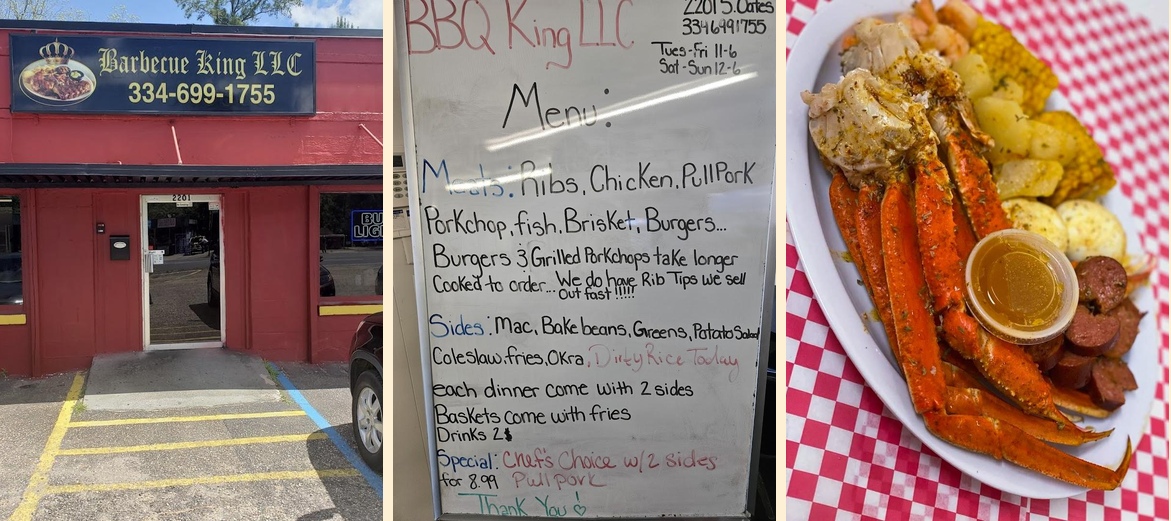 Barbecue King LLC
334-699-1755
2201
BUD
LIGHT
BBQ King LLC
2201 S. Oates
334 699 1755
Tues-Fri 11-6
Sat-Sun 12-6
Menu:
Meats: Ribs, Chicken, PullPork
Porkchop, fish, Brisket, Burgers...
Burgers & Grilled Porkchops take longer
Cooked to order... We do have Rib Tips we sell
out fast!!!!!
Sides: Mac, Bake beans, Greens, Potato Salad
Coleslaw, fries, Okra, Dirty Rice Today
each dinner come with 2 sides
Baskets come with fries
Drinks 2$
Special: Chef's Choice w/2 sides
for 8.99 Pull pork
Thank You